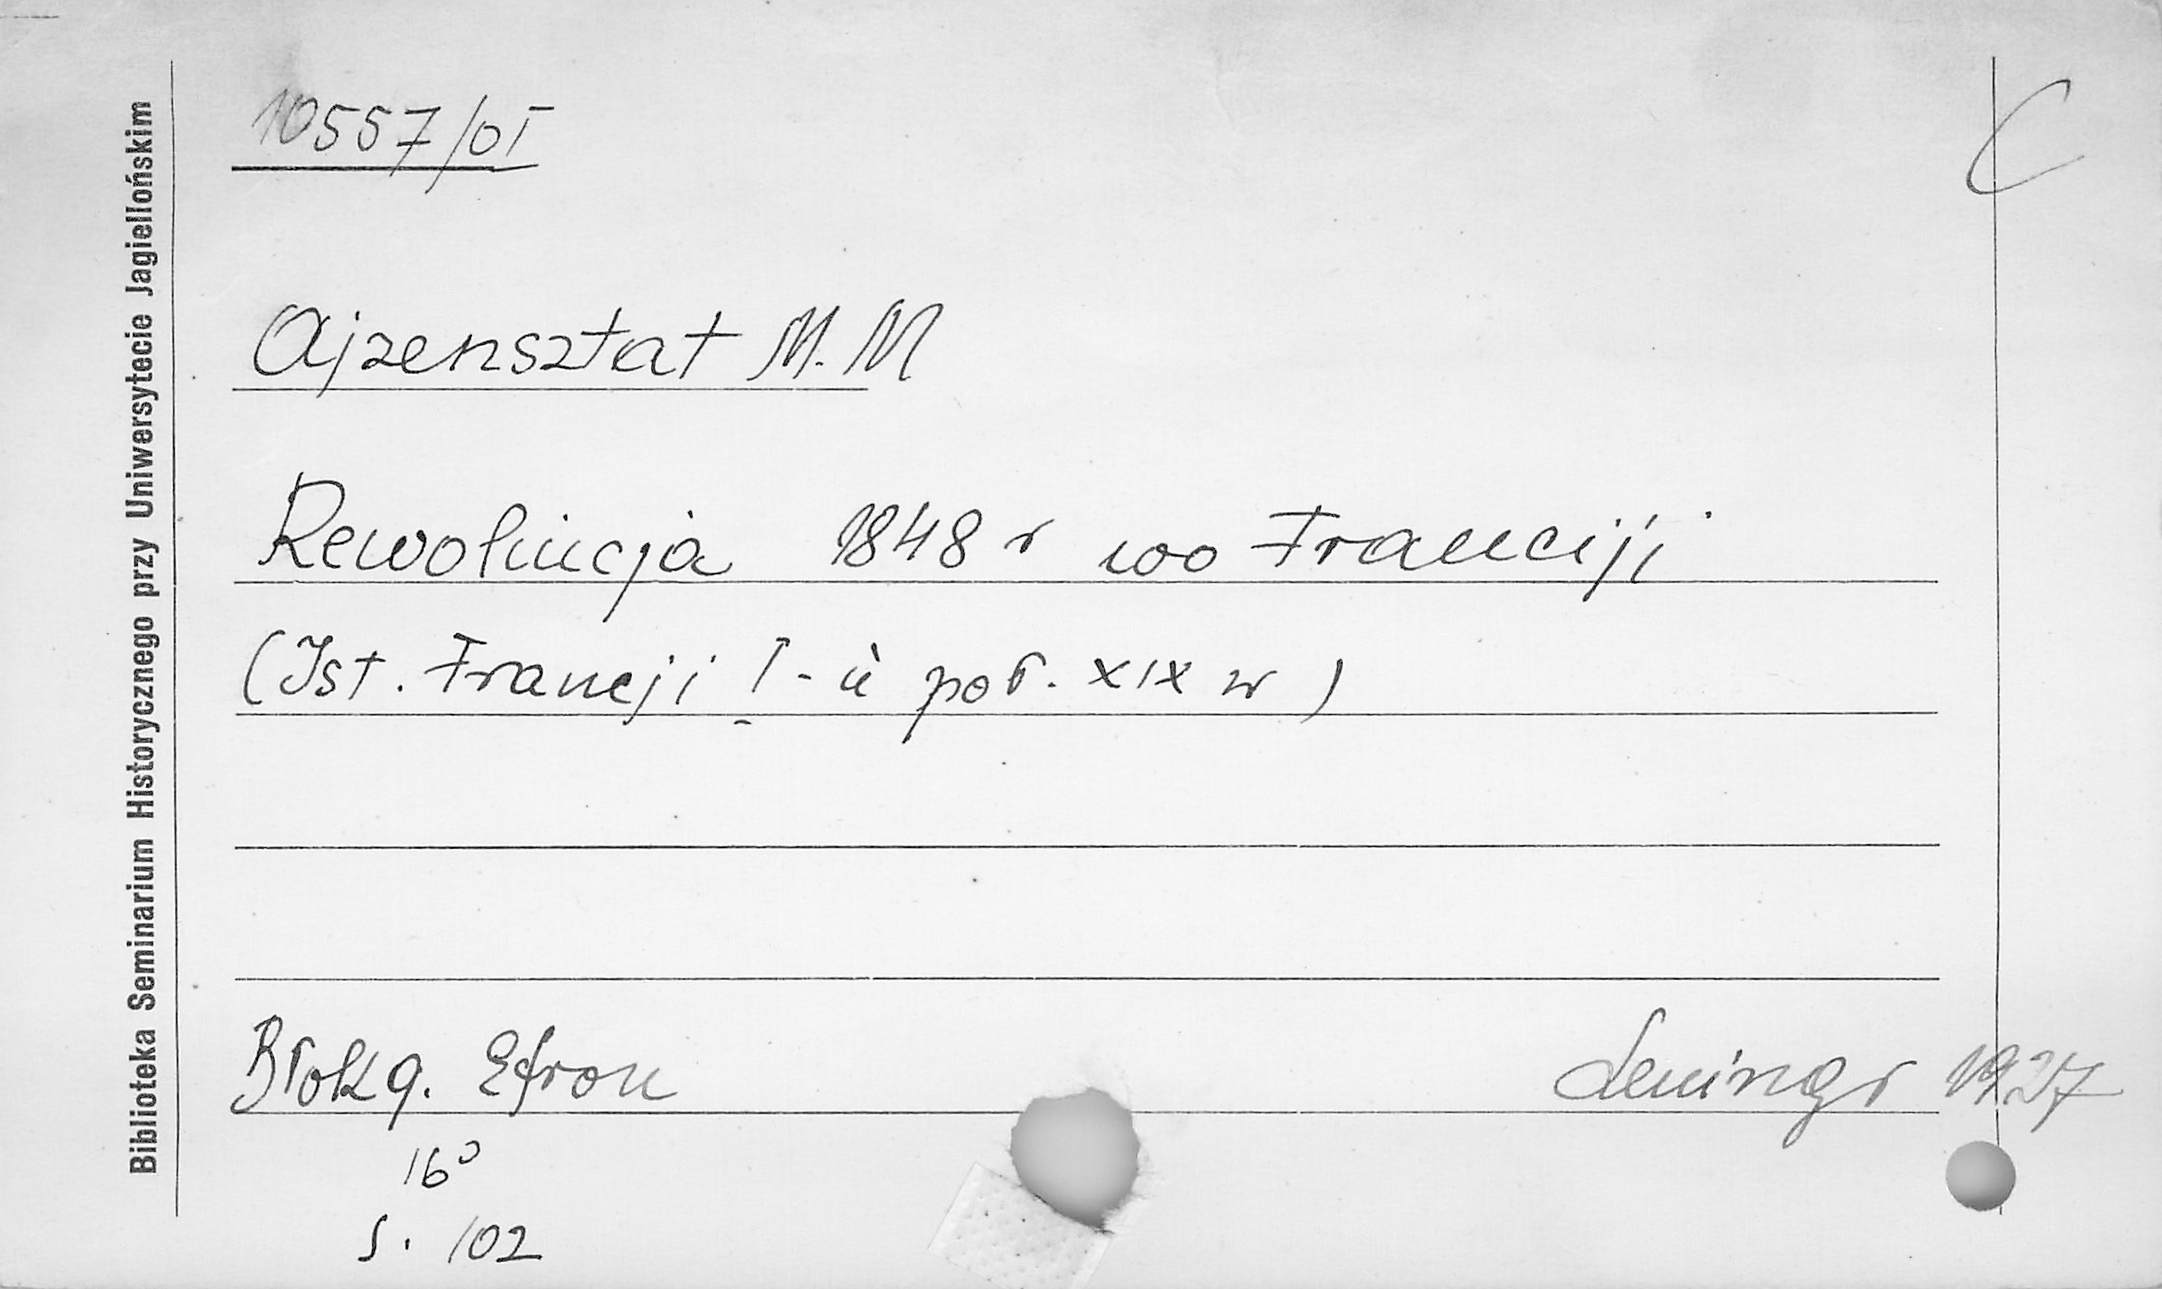 10557/OI
C
Ajzensztat M. M
Rewolucja 1848 r wo Franciji
(Ist. Francji I-ù poł. XIX w)
Brokg. Efron
Leningr 1927
16°
s. 102
Biblioteka Seminarium Historycznego przy Uniwersytecie Jagiellońskim